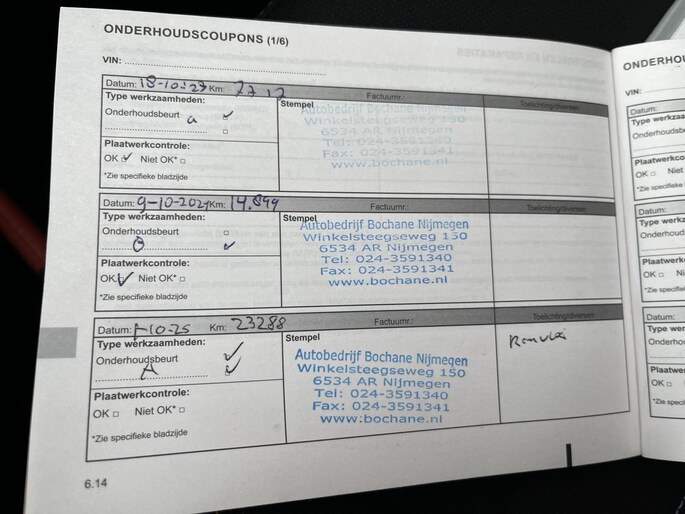 ONDERHOUDSCOUPONS (1/6)
VIN:
Datum: 18-10-23 Km: Factuurnr.: Toelichting/diversen
Type werkzaamheden: Stempel
Onderhoudsbeurt a
Autobedrijf Bochane Nijmegen
Winkelsteegseweg 150
6534 AR Nijmegen
Tel: 024-3591340
Fax: 024-3591341
www.bochane.nl
Plaatwerkcontrole:
OK Niet OK*
*Zie specifieke bladzijde
Datum: 9-10-2024 Km: 14.899 Factuurnr.: Toelichting/diversen
Type werkzaamheden: Stempel
Onderhoudsbeurt
Autobedrijf Bochane Nijmegen
Winkelsteegseweg 150
6534 AR Nijmegen
Tel: 024-3591340
Fax: 024-3591341
www.bochane.nl
Plaatwerkcontrole:
OK Niet OK*
*Zie specifieke bladzijde
Datum: -10-25 Km: 23288 Factuurnr.: Toelichting/diversen
Type werkzaamheden: Stempel
Onderhoudsbeurt
A
Autobedrijf Bochane Nijmegen
Winkelsteegseweg 150
6534 AR Nijmegen
Tel: 024-3591340
Fax: 024-3591341
www.bochane.nl
Plaatwerkcontrole:
OK Niet OK*
*Zie specifieke bladzijde
6.14
ONDERHOU
VIN:
Datum:
Type werkzaa
Onderhoudsb
Plaatwerkcont
OK Niet
*Zie specifieke
Datum:
Type werkza
Onderhoud
Plaatwerk
OK Ni
*Zie specifiek
Datum:
Type wer
Onderhou
Plaatwe
OK
*Zie speci